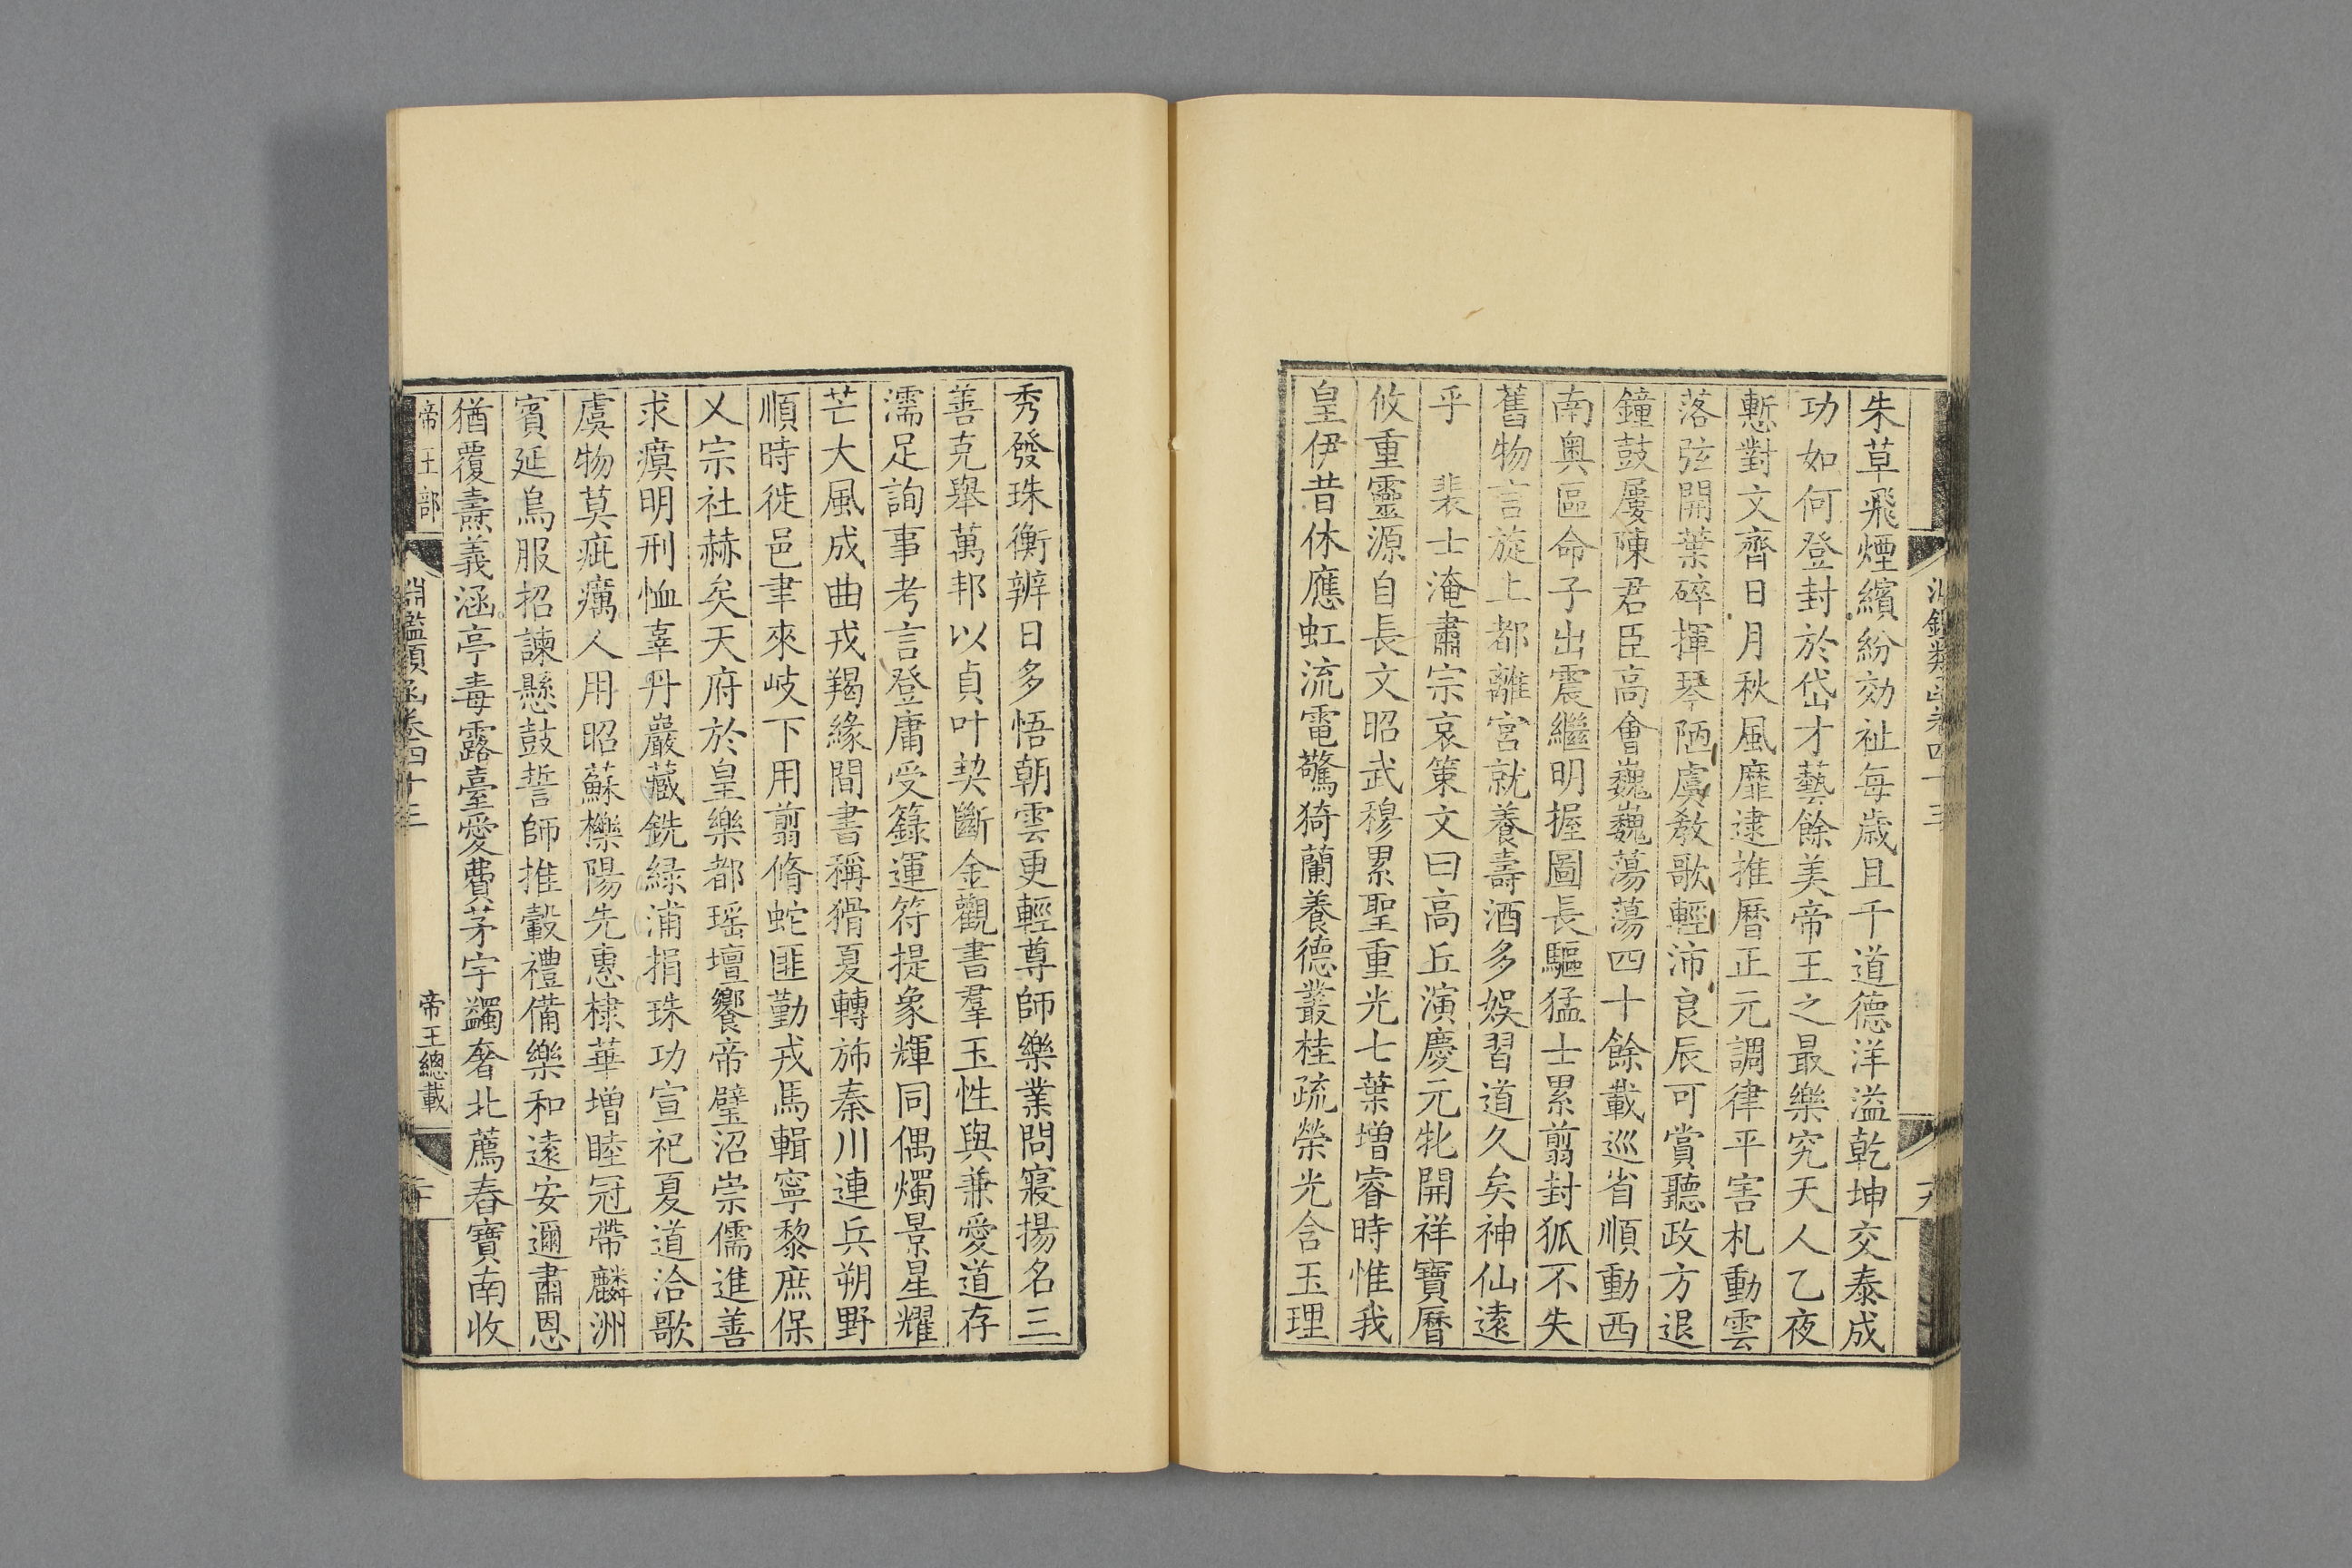 朱草飛煙繽紛効祉每歲且千道德洋溢乾坤交泰成
功如何登封於岱才藝餘美帝王之最樂究天人乙夜
慙對文齊日月秋風靡逮推曆正元調律平害札動雲
落弦開葉碎揮琴陋虞教歌輕沛良辰可賞聽政方退
鐘鼓屢陳君臣高會巍巍蕩蕩四十餘載巡省順動西
南奧區命子出震繼明握圖長驅猛士累翦封狐不失
舊物言旋上都離宮就養壽酒多娛習道久矣神仙遠
乎　裴士淹肅宗哀策文曰高丘演慶元牝開祥寶曆
攸重靈源自長文昭武穆累聖重光七葉增睿時惟我
皇伊昔休應虹流電驚猗蘭養德叢桂疏榮光含玉理
秀發珠衡辨日多悟朝雲更輕尊師樂業問寢揚名三
善克舉萬邦以貞叶契斷金觀書羣玉性與兼愛道存
濡足詢事考言登庸受籙運符提象輝同偶燭景星耀
芒大風成曲戎羯緣間書稱猾夏轉斾秦川連兵朔野
順時徙邑聿來岐下用翦脩蛇匪勤戎馬輯寧黎庶保
乂宗社赫矣天府於皇樂都瑶壇饗帝璧沼崇儒進善
求瘼明刑恤辜丹巖藏銑緑浦捐珠功宣祀夏道洽歌
虞物莫疵癘人用昭蘇櫟陽先惠棣華增睦冠帶麟洲
賓延鳥服招諫懸鼓誓師推轂禮備樂和遠安邇肅恩
猶覆燾義涵亭毒露臺愛費茅宇蠲奢北薦春寶南收
帝王部
淵鑑類函卷四十三
帝王總載
二十